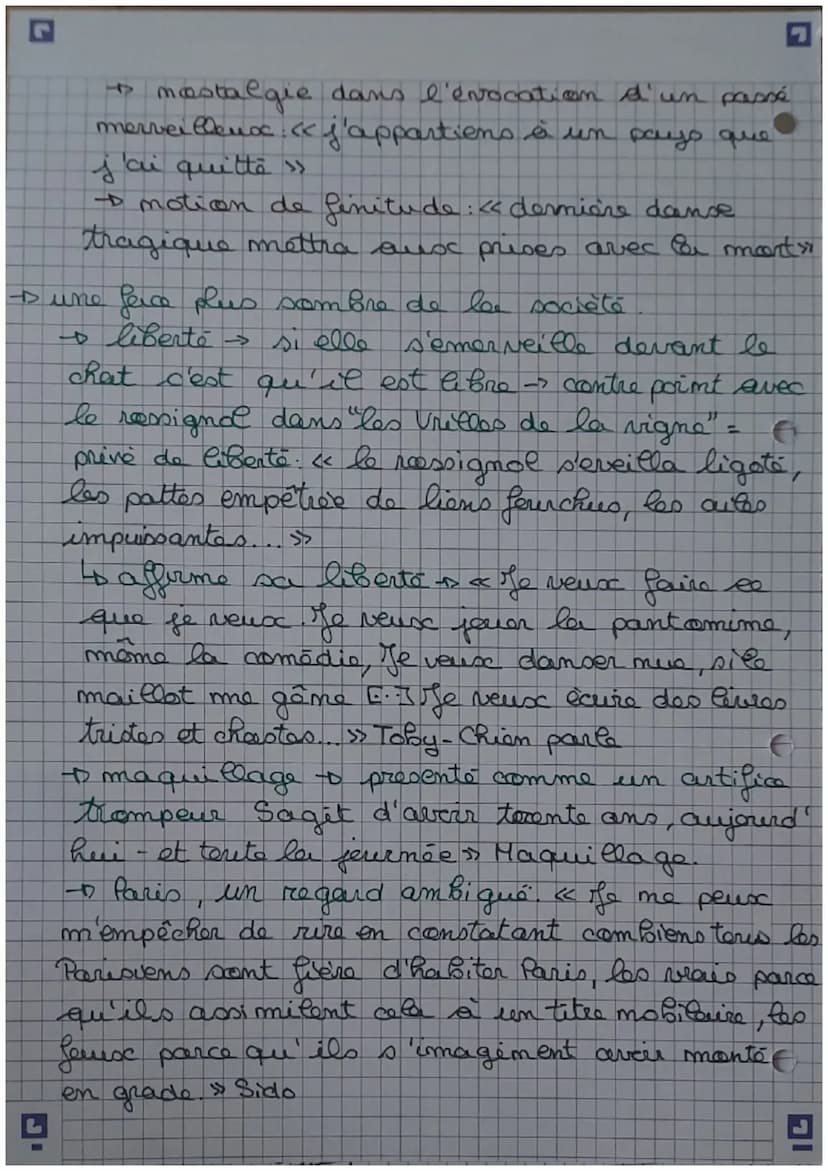 → nostalgie dans l'évocation d'un passé
merveilleux : « j'appartiens à un pays que
j'ai quitté »
→ notion de finitude : « dernière danse
tragique mettra aux prises avec la mort »
→ une face plus sombre de la société.
→ liberté → si elle s'emerveille devant le
chat c'est qu'il est libre → contre point avec
le rossignol dans "les Vrilles de la vigne" =
privé de liberté : « le rossignol s'eveilla ligoté,
les pattes empêtrée de liens fourchus, les ailes
impuissantes... »
↳ affirme sa liberté → « Je veux faire ce
que je veux. Je veux jouer la pantomime,
même la comédie, Je veux danser nue, si le
maillot me gêne [...] Je veux écrire des livres
tristes et chastes... » Toby-Chien parle
→ maquillage → presenté comme un artifice
trompeur Sagit d'avoir trente ans, aujourd'
hui - et toute la journée » Maquillage.
→ Paris, un regard ambiguë. « Je me peux
m'empêcher de rire en constatant combiens tous les
Parisiens sont fière d'habiter Paris, les vrais parce
qu'ils assimilent cela à un titre mobilaire, les
faux parce qu'ils s'imaginent avoir monté
en grade. » Sido